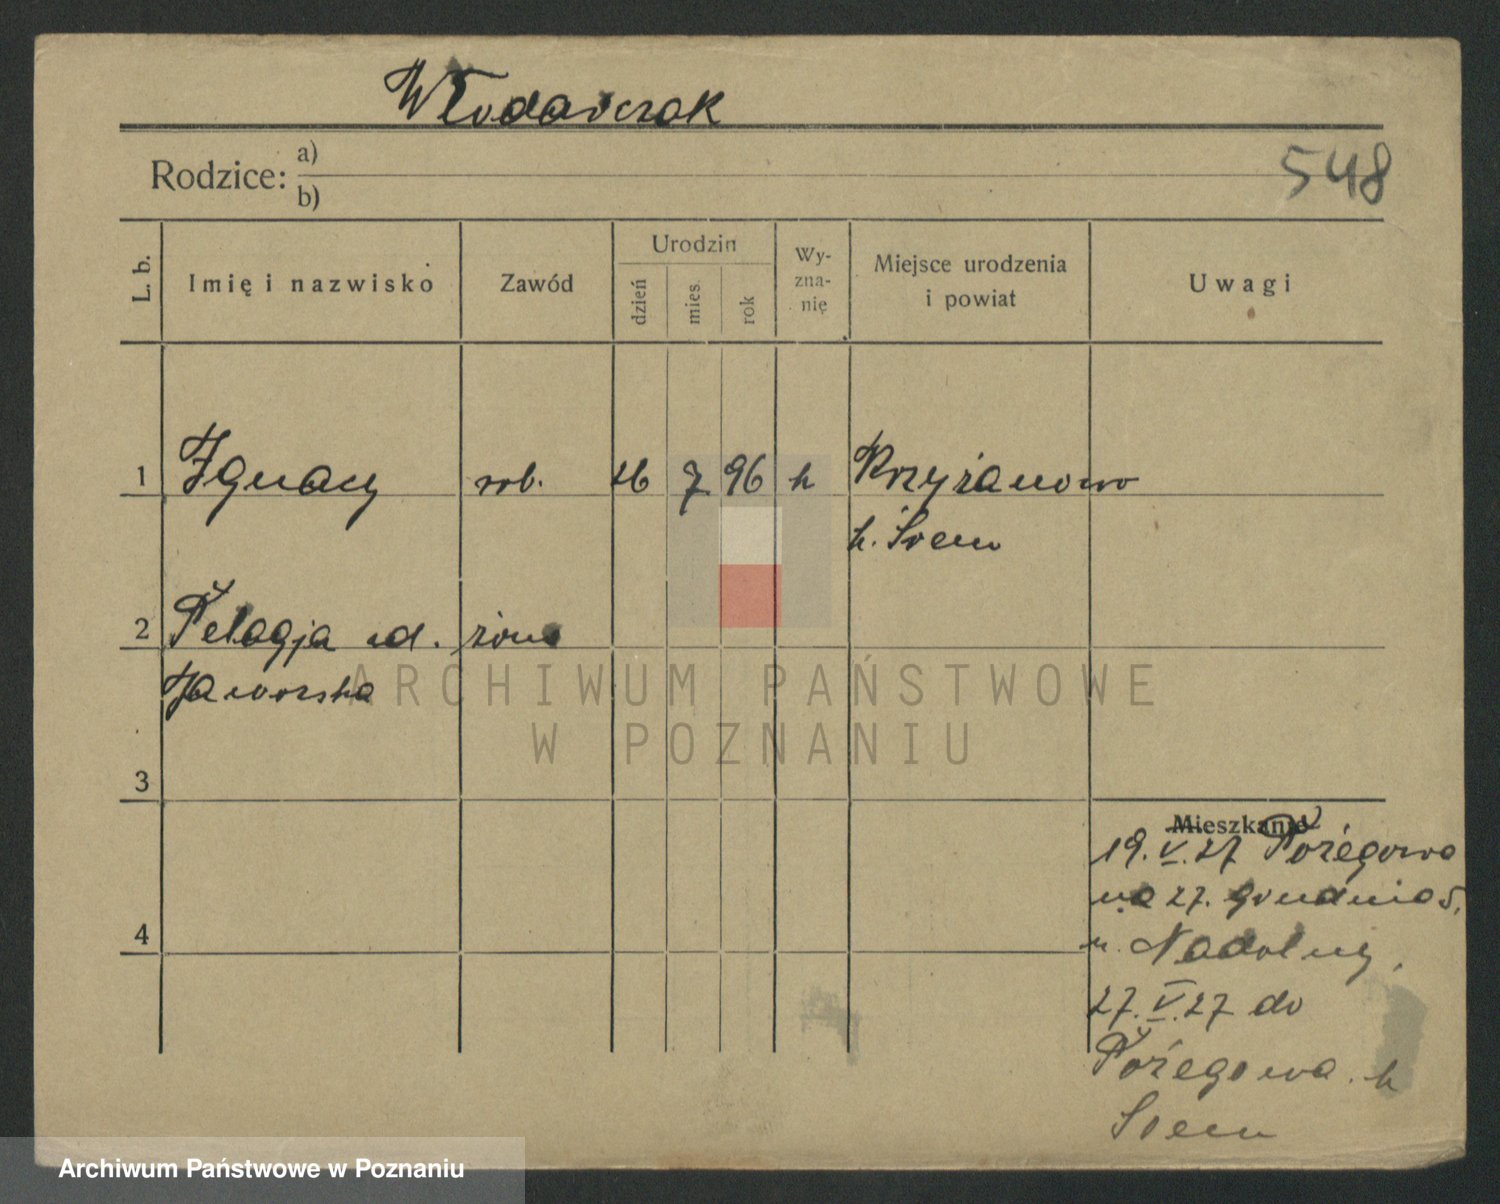 Włodarczak
Rodzice: a)
b)
548
L. b.
Imię i nazwisko
Zawód
Urodzin
dzień
mies.
rok
Wy-
zna-
nię
Miejsce urodzenia
i powiat
Uwagi
1 Ignacy rob. 26 7 96 k Krzyżanowo
k. Śrem
2 Pelagja ud. żona
Jaworska
3
4
Mieszkanie
19.V.27
na 27. grudnia 5.
u. Nadolny,
27.V.27 do
k
Śrem
ARCHIWUM PAŃSTWOWE
W POZNANIU
Archiwum Państwowe w Poznaniu